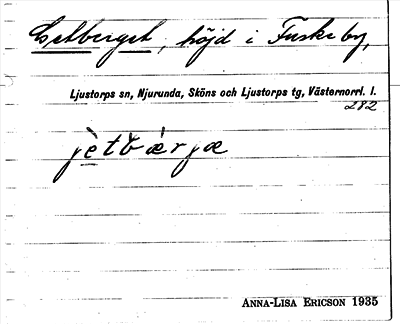 Getberget, höjd i Fuske by,
Ljustorps sn, Njurunda, Sköns och Ljustorps tg, Västernorrl. l.
282
jètbærjæ
ANNA-LISA ERICSON 1935